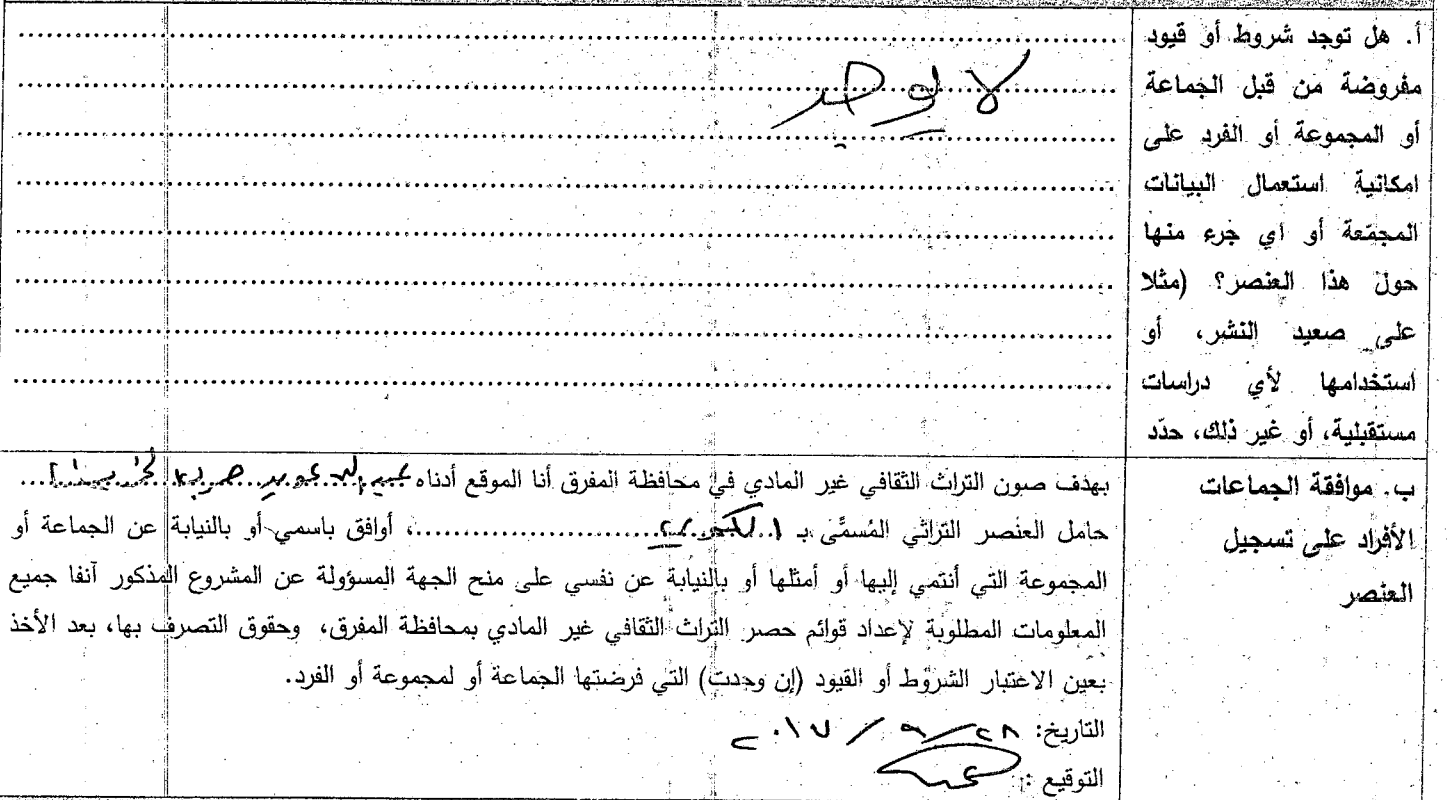 أ. هل توجد شروط أو قيود
مفروضة من قبل الجماعة
أو المجموعة أو الفرد على
امكانية استعمال البيانات
المجمّعة أو اي جزء منها
حول هذا العنصر؟ (مثلا
على صعيد النشر، أو
استخدامها لأي دراسات
مستقبلية، أو غير ذلك، حدّد
لا يوجد
ب. موافقة الجماعات
الأفراد على تسجيل
العنصر
بهدف صون التراث الثقافي غير المادي في محافظة المفرق أنا الموقع أدناه
حامل العنصر التراثي المُسمَّى بـ ......، أوافق باسمي أو بالنيابة عن الجماعة أو
المجموعة التي أنتمي إليها أو أمثلها أو بالنيابة عن نفسي على منح الجهة المسؤولة عن المشروع المذكور آنفا جميع
المعلومات المطلوبة لإعداد قوائم حصر التراث الثقافي غير المادي بمحافظة المفرق، وحقوق التصرف بها، بعد الأخذ
بعين الاعتبار الشروط أو القيود (إن وجدت) التي فرضتها الجماعة أو لمجموعة أو الفرد.
التاريخ: ٢٨ / ٩ / ٢٠١٧
التوقيع :